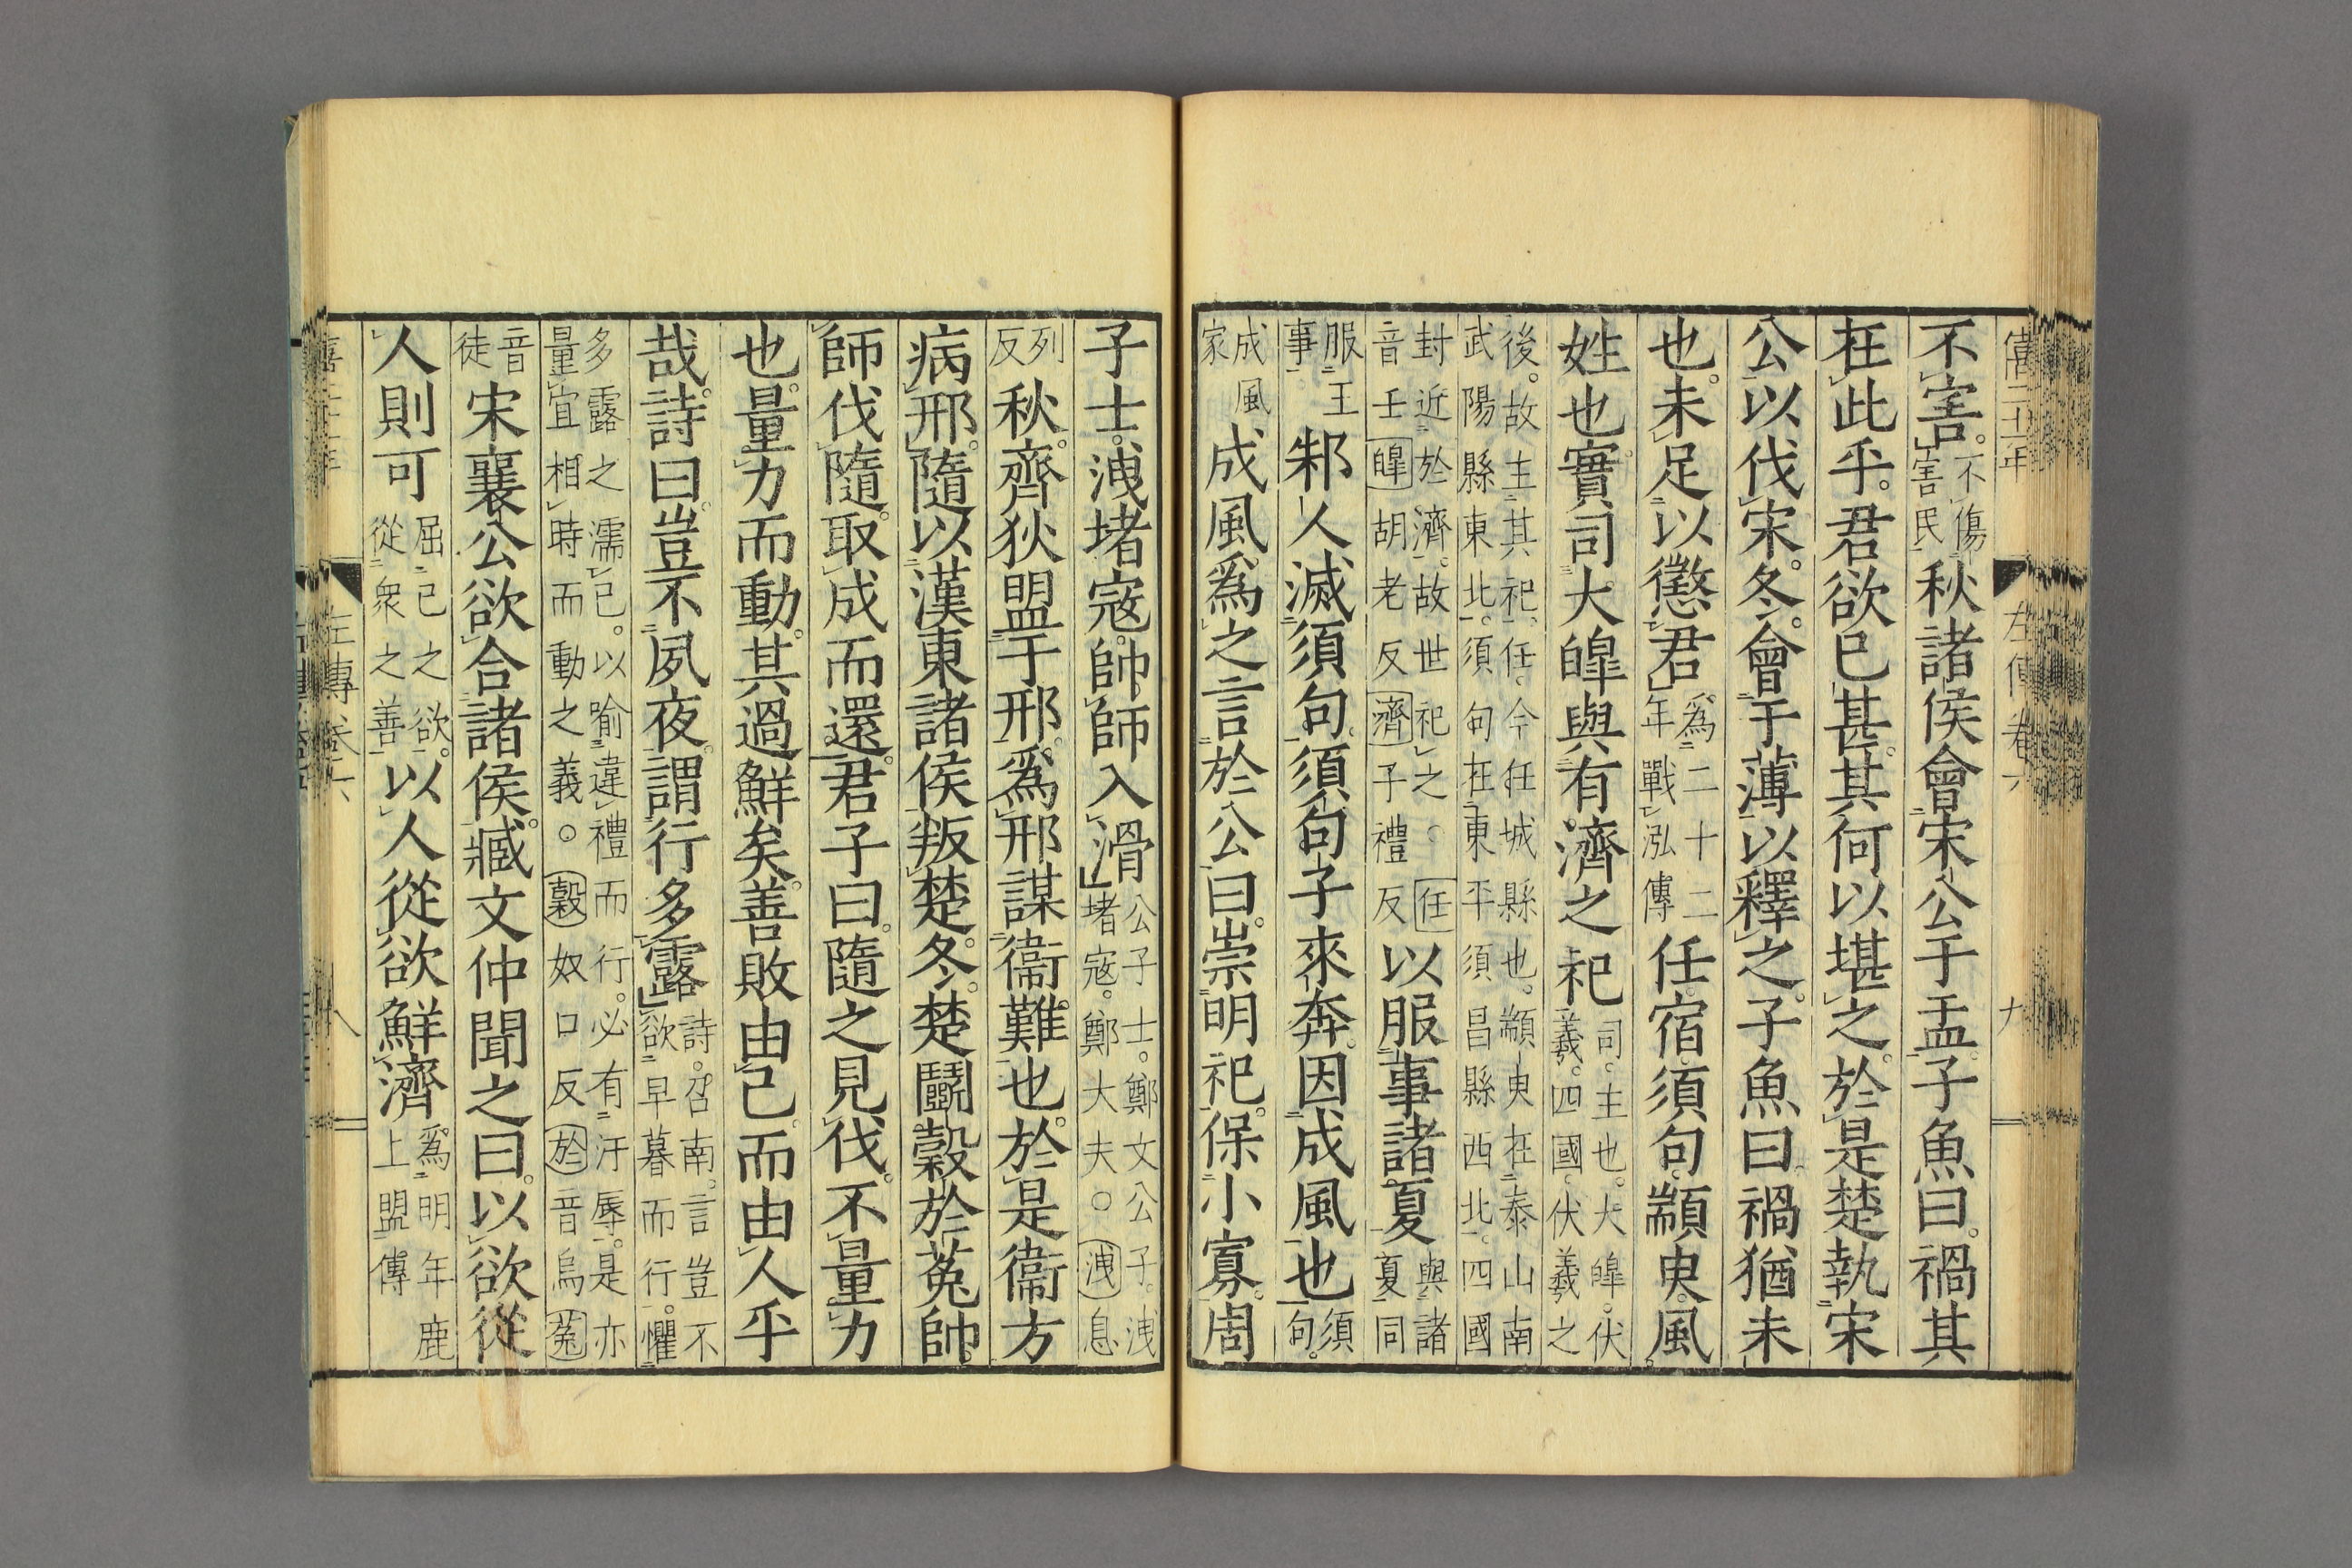 僖二十一年　左傳卷六　九
不害。不傷害民秋諸侯會宋公于盂。子魚曰。禍其
在此乎。君欲已甚。其何以堪之。於是楚執宋
公以伐宋。冬。會于薄以釋之。子魚曰。禍猶未
也。未足以懲君爲二十二年戰泓傳任宿須句。顓臾。風
姓也。實司大皥與有濟之祀司。主也。大皥。伏羲。四國。伏羲之
後。故主其祀。任。今任城縣也。顓臾在泰山南武陽縣東北。須句在東平須昌縣西北。四國
封近於濟。故世祀之。○任音壬皥胡老反濟子禮反以服事諸夏與諸夏同
服王事。邾人滅須句。須句子來奔。因成風也須句。
成風家成風爲之言於公曰。崇明祀。保小寡。周
子士。洩堵寇。帥師入滑公子士。鄭文公子。洩堵寇。鄭大夫。○洩息
列反秋。齊狄盟于邢。爲邢謀衞難也。於是衞方
病邢。隨以漢東諸侯叛楚。冬。楚鬬穀於菟帥。
師伐隨。取成而還。君子曰。隨之見伐。不量力
也。量力而動。其過鮮矣。善敗由己。而由人乎
哉。詩曰。豈不夙夜。謂行多露詩。召南。言豈不欲早暮而行。懼
多露之濡己。以喻違禮而行。必有汙辱。是亦量宜相時而動之義。○穀奴口反於音烏菟
音徒宋襄公欲合諸侯。臧文仲聞之曰。以欲從
人則可屈己之欲。從衆之善以人從欲鮮濟爲明年鹿上盟傳
左傳卷六　八